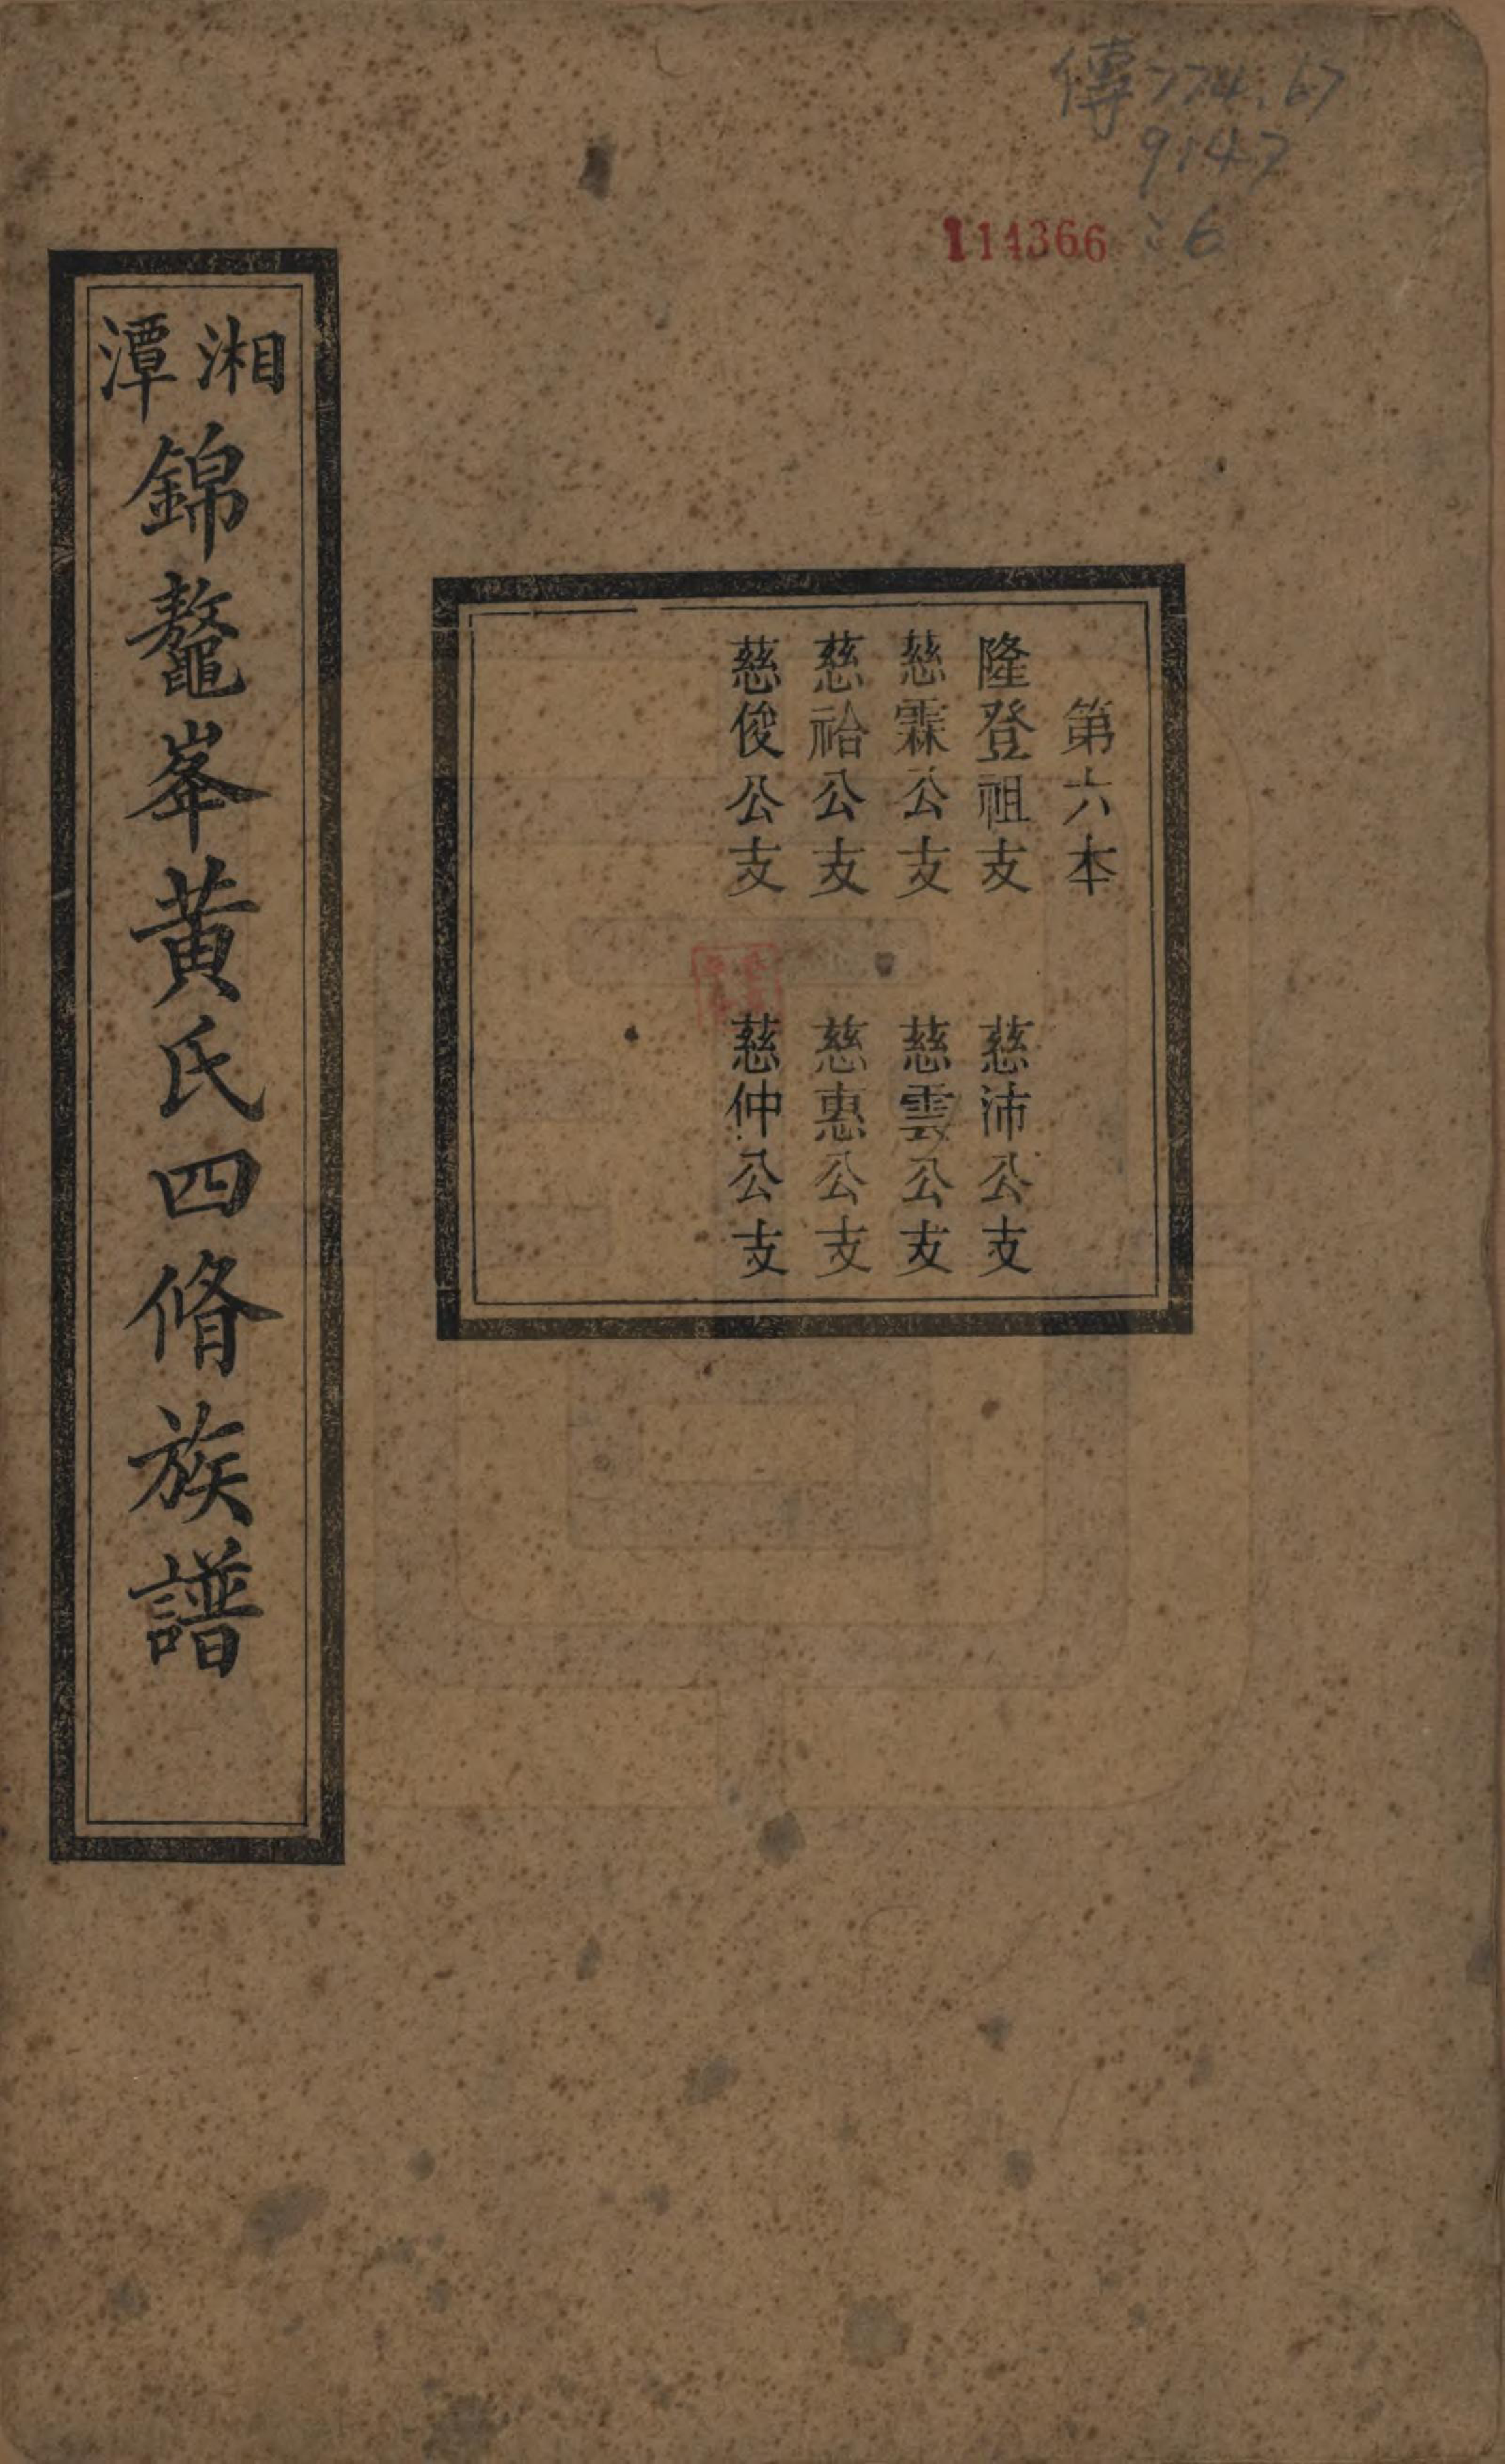 傳774.67
9147
:6
114366
第六本
隆登祖支　慈沛公支
慈霖公支　慈雲公支
慈祫公支　慈惠公支
慈俊公支　慈仲公支
湘潭錦鼇峯黃氏四脩族譜